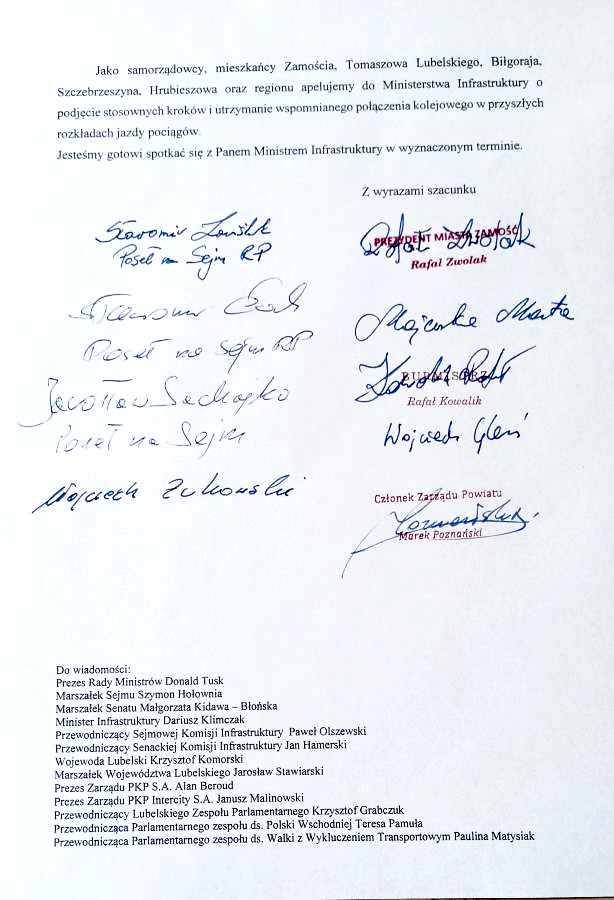 Jako samorządowcy, mieszkańcy Zamościa, Tomaszowa Lubelskiego, Biłgoraja,
Szczebrzeszyna, Hrubieszowa oraz regionu apelujemy do Ministerstwa Infrastruktury o
podjęcie stosownych kroków i utrzymanie wspomnianego połączenia kolejowego w przyszłych
rozkładach jazdy pociągów.
Jesteśmy gotowi spotkać się z Panem Ministrem Infrastruktury w wyznaczonym terminie.
Z wyrazami szacunku
Sławomir
Poseł na Sejm RP
PREZYDENT MIASTA ZAMOŚĆ
Rafał Zwolak
Rafał Zwolak
Poseł na Sejm RP
Majewska Marta
BURMISTRZ
Rafał Kowalik
Jarosław Sachajko
Poseł na Sejm
Wojciech Gleń
Wojciech Żukowski
Członek Zarządu Powiatu
Marek Poznański
Do wiadomości:
Prezes Rady Ministrów Donald Tusk
Marszałek Sejmu Szymon Hołownia
Marszałek Senatu Małgorzata Kidawa – Błońska
Minister Infrastruktury Dariusz Klimczak
Przewodniczący Sejmowej Komisji Infrastruktury Paweł Olszewski
Przewodniczący Senackiej Komisji Infrastruktury Jan Hamerski
Wojewoda Lubelski Krzysztof Komorski
Marszałek Województwa Lubelskiego Jarosław Stawiarski
Prezes Zarządu PKP S.A. Alan Beroud
Prezes Zarządu PKP Intercity S.A. Janusz Malinowski
Przewodniczący Lubelskiego Zespołu Parlamentarnego Krzysztof Grabczuk
Przewodnicząca Parlamentarnego zespołu ds. Polski Wschodniej Teresa Pamuła
Przewodnicząca Parlamentarnego zespołu ds. Walki z Wykluczeniem Transportowym Paulina Matysiak